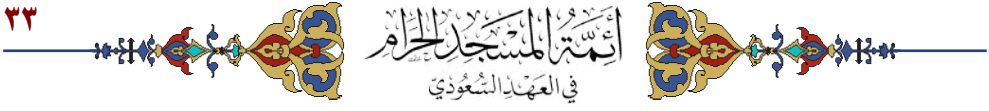 ٣٣
أَئِمَّةُ المَسْجِدِ الحَرَامِ
في العَهْدِ السُّعُوْدِيّ